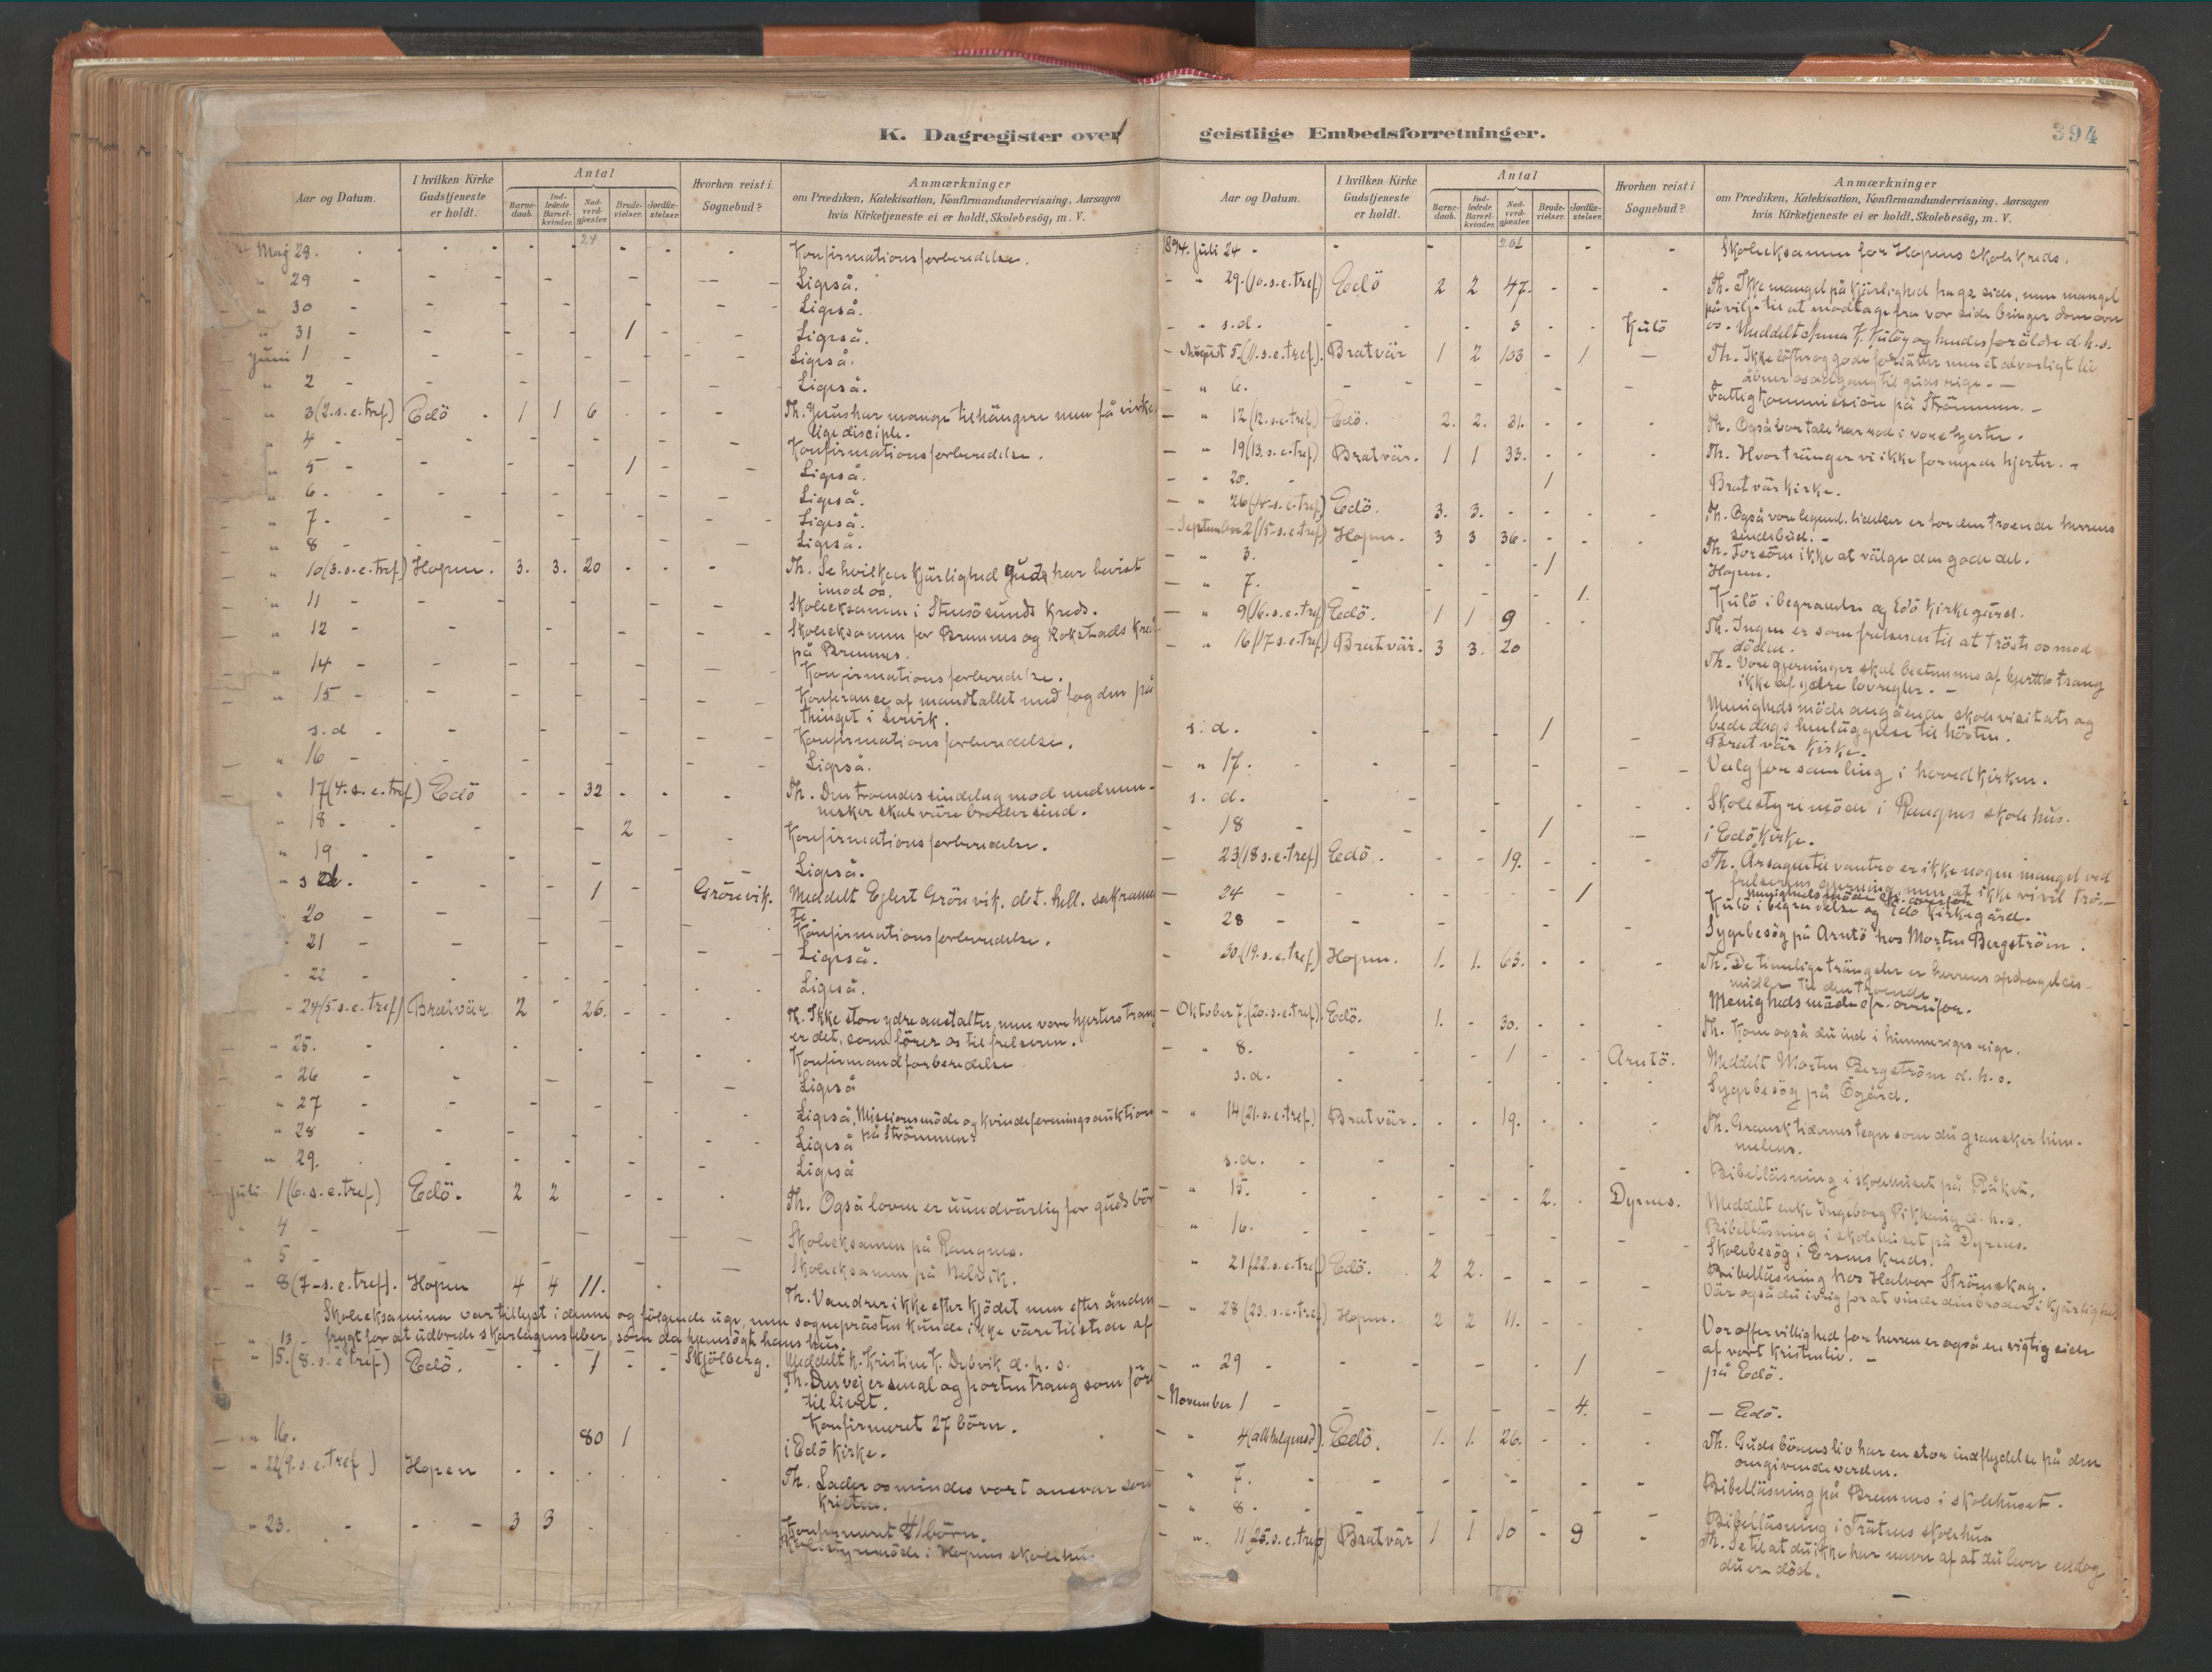 K. Dagregister over
Aar og Datum.
I hvilken Kirke Gudstjeneste er holdt.
Antal
Barne-daab.
Ind-ledede Barsel-kvinder.
Nad-verd-gjæster.
Brude-vielser.
Jordfæ-stelser.
Hvorhen reist i Sognebud?
Anmærkninger
om Prædiken, Katekisation, Konfirmandundervisning, Aarsagen
hvis Kirketjeneste ei er holdt, Skolebesög, m. V.
24
Maj 28. - - - - - - - - Konfirmationsforberedelse.
" 29 - - - - - - Ligeså.
" 30 - - - - Ligeså.
" 31 - - - - 1 - - Ligeså.
Juni 1 - - - - - - Ligeså.
" 2 - - - - - - Ligeså.
" 3 (2. s. e. tref) Edö - 1 1 6 - - - Th. Jesus har mange tilhängere men få virke
lige disciple.
" 4 - - - - - Konfirmationsforberedelse.
" 5 - - - - 1 - - Ligeså.
" 6 - - - - - - Ligeså.
" 7 - - - - - - Ligeså.
" 8 - - - - - - Ligeså.
" 10 (3. s. e. tref) Hopen. 3. 3. 20 - - - Th. Se hvilken kjärlighed Gud har bevist
imod os.
" 11 - - - - - - Skoleeksamen i Stensösunds kreds.
" 12 - - - - - - Skoleeksamen for Bremnes og Rokstads kred
på Bremnes.
" 14 - - - - - - Konfirmationsforberedelse.
" 15 - - - - - - Konferance af mandtallet med fogden på
thinget i Leirvik.
s. d - - - - - - Konfirmationsforberedelse.
" 16 - - - - - - Ligeså.
" 17 (4. s. e. tref) Edö - - 32 - - - Th. Den troendes sindelag mod medmen-
nesker skal väre brodersind.
" 18 - - - 2 - - Konfirmationsforberedelse.
" 19 - - - - - - Ligeså.
- s d. - - - 1 - Grönevik. Meddelt Eglert Grönevik. det. hell. sakramen
te.
" 20 - - - - - Konfirmationsforberedelse.
- 21 - - - - - - Ligeså.
- 22 - - - - - - Ligeså.
- 24 (5. s. e. tref) Bratvär 2 " 26. - - - Th. Ikke store ydre anstalter, men vore hjerters trang
er det, som förer os til frelseren.
- 25. - - - - - - Konfirmandforberedelse
- 26 - - - - - Ligeså
" 27 - - - - - - Ligeså, Missionsmöde og kvindeforeningsauktion
på Strömmen.
" 28 - - - - - - Ligeså
" 29. - - - - - Ligeså
Juli 1 (6. s. e. tref) Edö. 2 2 - - - Th. Også loven er uundvärlig for guds bör
" 4 - - - - - - Skoleeksamen på Rangnes.
" 5 - - - - Skoleeksamen på Nelvik.
" 8 (7. s. e. tref). Hopen 4 4 11. - Th. Vandrer ikke efter kjödet men efter ånden
Skoleeksamina var tillyst i denne og fölgende uge, men sogneprästen kunde ikke väre tilstede af
" 13 - frygt for at udbrede skarlagensfeber, som da hjemsögte hans hus.
" 15. (8. s. e tref) Edö. - - 1 - - Skjölberg. Meddelt K. Kristine K. Dybvik d. h. s.
Th. Den vej er smal og porten trang som före
til livet.
Konfirmeret 27 börn.
- " 16. 80 1 i Edö kirke.
- " 22 (9. s. e. tref) Hopen - - - - - Th. Lader os mindes vort ansvar som
kristen.
3 3 Konfirmeret 41 börn.
" 23. - - - - Skolestyremöde i Hopens skolehus
geistlige Embedsforretninger.
394
Aar og Datum.
I hvilken Kirke Gudstjeneste er holdt.
Antal
Barne-daab.
Ind-ledede Barsel-kvinder.
Nad-verd-gjæster.
Brude-vielser.
Jordfæ-stelser.
Hvorhen reist i Sognebud?
Anmærkninger
om Prædiken, Katekisation, Konfirmandundervisning, Aarsagen
hvis Kirketjeneste ei er holdt, Skolebesög, m. V.
201
1894. Juli 24 - - - - - Skoleeksamen for Hopens skolekreds.
- " 29. (10. s. e. tref) Edö 2 2 47. - - - Th. Ikke mangel på kjärlighed fra gs side, men mangel
på vilje til at modtage fra vor side bringer dom over
os.
- " s. d. - - - 3 - - Kulö Meddelt Anna K. Kulöy og hendes forälde d. h. s.
- August 5. (11. s. e. tref). Bratvär 1 2 103 - 1 - Th. Ikke löfter og gode forsätter men et alvorligt liv
åbner os adgang til guds rige. -
- " 6. - - - - Fattigkommission på Strömmen. -
- " 12 (12. s. e. tref.) Edö. 2. 2. 31. - - - Th. Også vor tale har rod i vore hjerter.
- " 19 (13. s. e. tref) Bratvär. 1 1 33. - - - Th. Hvor tränger vi ikke fornyede hjerter. -
- " 20. - 1 Bratvär kirke.
- " 26 (14. s. e. tref) Edö. 3. 3. - - - - Th. Også vore legeml. lidelser er for den troende herrens
sendebud. -
- September 2 (15. s. e. tref) Hopen. 3 3 36. - - - Th. Forsöm ikke at välge den gode del.
- " 3. - - - - 1 Hopen.
- " 7. - - - - 1. Kulö i begravelse og Edö kirkegård.
- " 9 (16. s. e. tref) Edö. 1 1 9 - - Th. Ingen er som frelseren til at tröste os mod
döden.
- " 16 (17. s. e. tref) Bratvär. 3 3. 20 Th. Vore gjerninger skal bestemmes af hjertets trang
ikke af ydre lovregler. -
Menighedsmöde angående skolevisitats og
bededags henläggelse til hösten.
s. d. - - - 1 - Bratvär kirke.
- " 17. - - - - - - Valgforsamling i hovedkirken.
s. d. - - - - - Skolestyremöde i Rangnes skolehus.
- 18 - - - 1 - i Edö kirke.
- 23 (18 s. e. tref) Edö. - - 19. - - - Th. Årsagen til vantro er ikke nogen mangel ved
frelserens gjerning, men at ikke vi vil tro. -
Menighedsmöde efr. ovenfor
- 24 - - - - - 1 Kulö i begravelse og Edö kirkegård.
- 28 - - - - - - Sygebesög på Arntö hos Morten Bergström.
- 30 (19. s. e. tref) Hopen. 1. 1. 63. - - - Th. De timelige trängsler er herrens opdragelses-
midler til den troende
Menighedsmöde efr. ovenfor.
- Oktober 7. (20. s. e. tref). Edö. 1. - 30. - - - Th. Kom også du ind i himmeriges rige.
- " 8. - - - 1 - - Arntö. Meddelt Morten Bergström d. h. s.
- s. d. - - - - - - Sygebesög på Ögård.
- " 14 (21. s. e. tref.) Bratvär. - - 19. - - - Th. Gransk tidernes tegn som du gransker him-
melens.
s. d. - - - - - - Bibelläsning i skolehuset på Råket.
- " 15. - - - - - 2. - Dyrnes. Meddelt enke Ingeborg Pikhaug d. h. s.
Bibelläsning i skolehuset på Dyrnes.
" 16. - - - - - - Skolebesög i Ersnes kreds.
Bibelläsning hos Halvor Strömskag.
" 21 (22. s. e. tref) Edö. 2 2. - - - - Vär også du ivrig for at vinde din broder i kjärlighed.
- " 28 (23. s. e. tref) Hopen. 2 2 11. - - - Vor offervillighed for herren er også en vigtig side
af vort kristenliv. -
- " 29 - - - - - 1 - på Edö.
- November 1 - - - - - 4. - - Edö.
- " 4 (allehelgensd). Edö. 1. 1. 26. - - - Th. Guds börns liv har en stor indflydelse på den
omgivende verden.
- " 7. - - - - - - Bibelläsning på Bremnes i skolehuset.
- " 8. - - - - - - Bibelläsning i Trätnes skolehus
- " 11 (25. s. e. tref) Bratvär 1 1 10 - 9 - Th. Se til at du ikke har navn af at du lever endog
du er död.